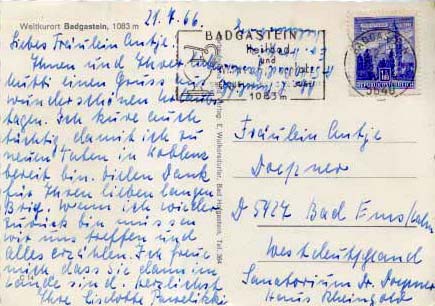 21.7.66
Weltkurort Badgastein, 1083 m
Liebes Fräulein Antje.
Ihnen und Ihrer lieben
Mutti einen Gruss aus
wunderschönen
tagen. Ich kure auch
tüchtig damit ich zu
neuen Taten in Koblenz
bereit bin. Vielen Dank
für Ihren lieben langen
Brief. Wenn ich wieder
zurück bin müssen
wir uns treffen und
alles erzählen. Ich freue
mich, dass Sie dann im
Lande sind. Herzlichst
Ihre Liselotte
BADGASTEIN
Heilbad
und
1083 m
REPUBLIK ÖSTERREICH
Verlag: E. Wolkersdorfer, Bad Hofgastein, Tel. 364
Fräulein Antje
Doepner
D 5427 Bad Ems/Lahn
Westdeutschland
Sanatorium Dr. Doepner
Haus Rheingold